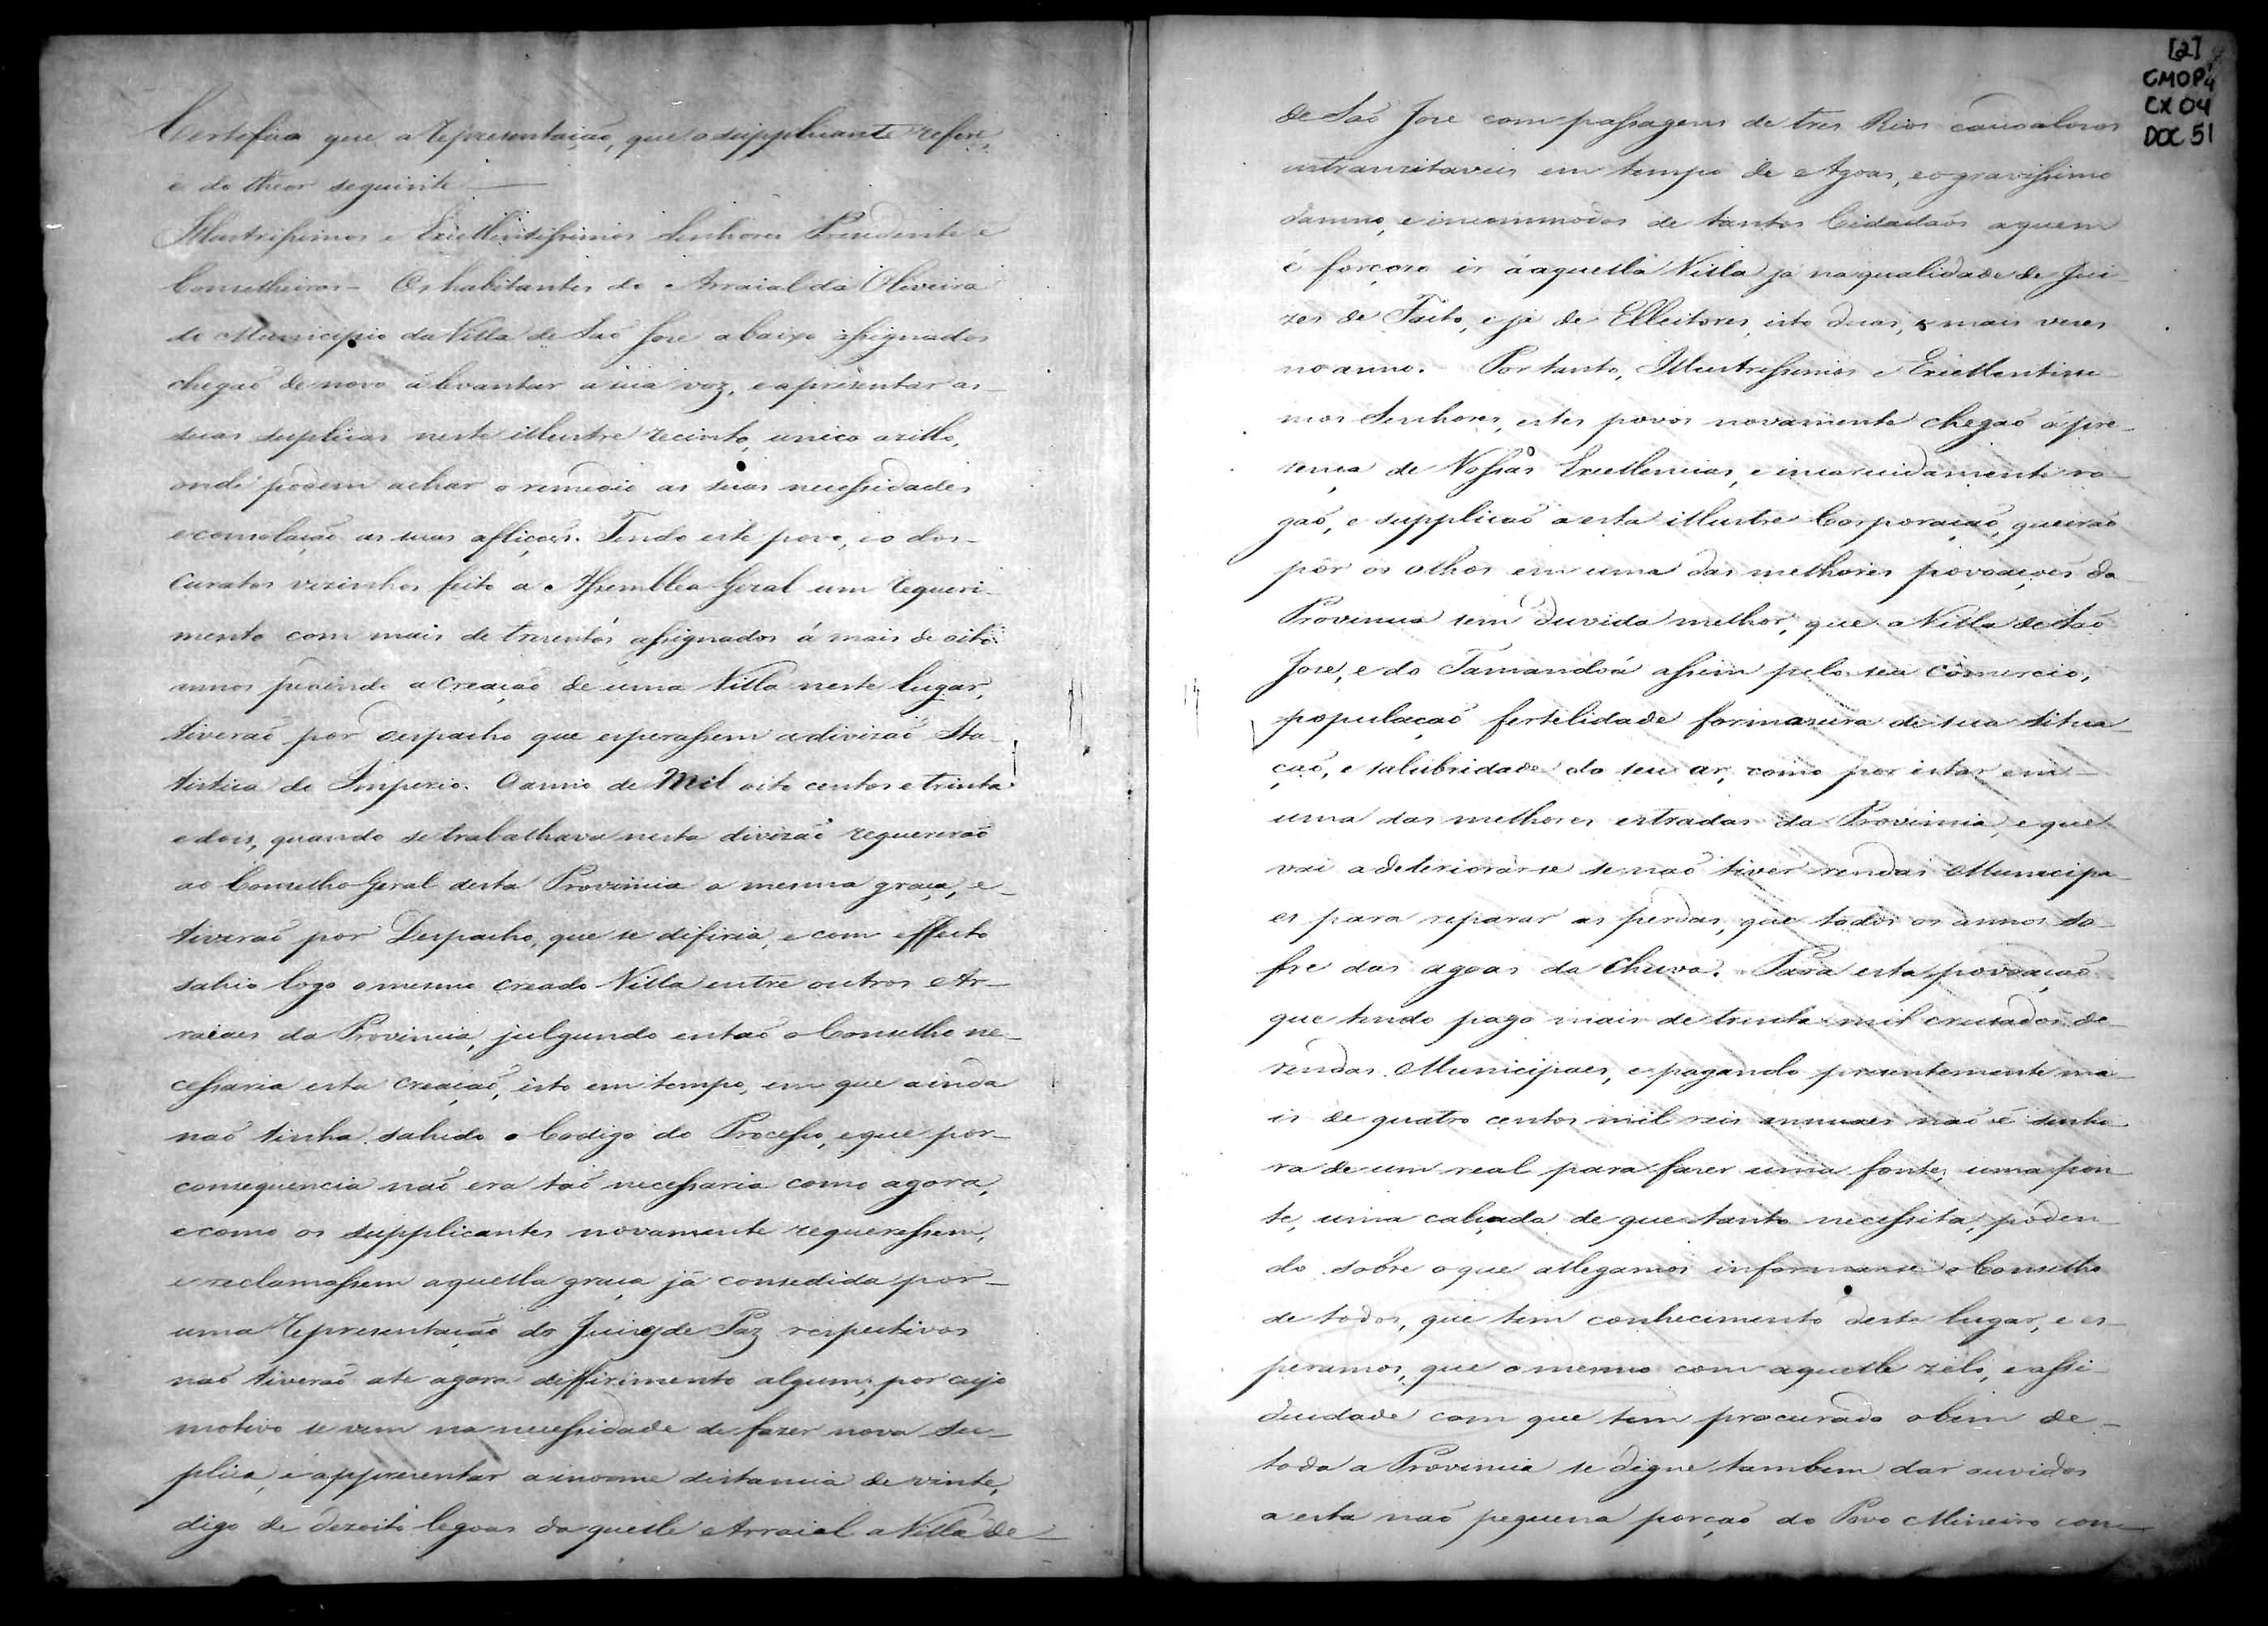 Certefico que a Representação, que o suppplicante refere,
é do theor seguinte —
Illustrissimos e Excellentissimos Senhores Presidente e
Conselheiros — Os habitantes do Arraial da Oliveira
do Municipio da Villa de Saõ Jose abaixo assignados
chegaõ de novo á levantar a sua voz, e apresentar as
suas suplicas neste illustre recinto, unico azillo,
onde podem achar o remedio as suas necessidades
e consolaçaõ as suas afliçoẽs. Tendo este povo, e o dos
Curatos vezinhos feito a Assemblea Geral um requeri-
mento com mais de trezentos assignados á mais de oito
annos pedindo a creaçaõ de uma Villa neste lugar,
tiveraõ por despacho que esperassem a divizaõ Sta-
tistica do Imperio. O anno de Mil oito centos e trinta
e dois, quando se trabalhava nesta divizaõ requereraõ
ao Conselho Geral desta Provincia a mesma graça, e
tiveraõ por Despacho, que se difiria, e com effeito
sahio logo o mesmo creado Villa entre outros Ar-
raiaes da Provincia, julgando entaõ o Conselho ne-
cessaria esta creaçaõ, isto em tempo, em que ainda
naõ tinha sahido o Codigo do Processo, e que por
consequencia naõ era taõ necessaria como agora,
e como os supplicantes novamente requeressem,
e reclamassem aquella graça já consedida por
uma Representaçaõ do Juiz de Paz respectivos
naõ tiveraõ ate agora diffirimento algum, por cujo
motivo se vem na necessidade de fazer nova su-
plica, e appresentar a inorme distancia de vinte,
digo de dezoito legoas da quelle Arraial a Villa de
[2]
CMOP
CX 04
DOC 51
de Saõ Jose com passagens de tres Rios caudalosos
intranzitaveis em tempo de Agoas, e o gravissimo
damno, e incommodos de tantos Cidadaõs a quem
é forçoso ir á aquella Villa já na qualidade de Jui-
zes de Facto, e já de Elleitores, isto duas, e mais vezes
no anno. Por tanto, Illustrissimos e Excellentissi-
mos Senhores, estes povos novamente chegaõ á pre-
zença de Vossas Excellencias, e incarecidamente ro-
gaõ, e supplicaõ a esta illustre Corporaçaõ, queiraõ
pôr os olhos em uma das melhores povoaçoẽs da
Provincia sem duvida melhor, que a Villa de Saõ
Jose, e do Tamanduá assim pelo seu Comercio,
populaçaõ fertelidade formozura de sua situa-
çaõ, e salubridade do seu ar, como por estar em
uma das melhores estradas da Provincia, e que
vai a deteriorar-se se naõ tiver rendas Municipa-
es para reparar as perdas, que todos os annos so-
fre das agoas da Chuva. Para esta povoaçaõ
que tendo pago mais de trinta mil cruzados de
rendas Municipaes, e pagando prezentemente ma-
is de quatro centos mil reis annuaes naõ é senho-
ra de um real para fazer uma fonte, uma pon-
te, uma calçada de que tanto necessita, poden-
do sobre o que allegamos informarse o Conselho
de todos, que tem conhecimento deste lugar, e es-
peramos, que o mesmo com aquelle zelo, e assi-
duidade com que tem procurado o bem de
toda a Provincia se digne tambem dar ouvidos
a esta naõ pequena porçaõ do Povo Mineiro con-